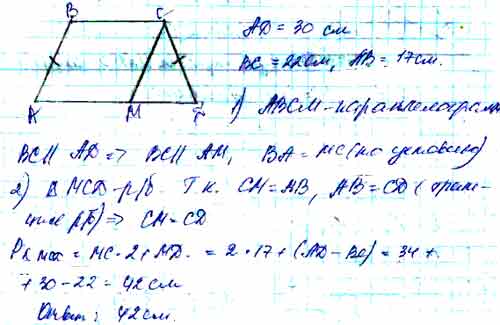 B C
A M D
AD = 30 см
BC = 22 см, AB = 17 см.
1) ABCM - параллелограмм
BC || AD => BC || AM, BA = MC (по условию)
2) Δ MCD - р/б. Т.к. CM = AB, AB = CD (трапе-
ция р/б) => CM = CD
= MC · 2 + MD = 2 · 17 + (AD - BC) = 34 +
+ 30 - 22 = 42 см
Ответ: 42 см.